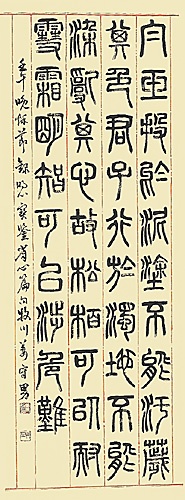 白玉投於泥塗不能汚穢
其色君子行於濁地不能
染亂其心故松柏可以耐
雪霜明智可以涉危難
壬午 節錄明心寶鑑省心篇句牧川姜守男